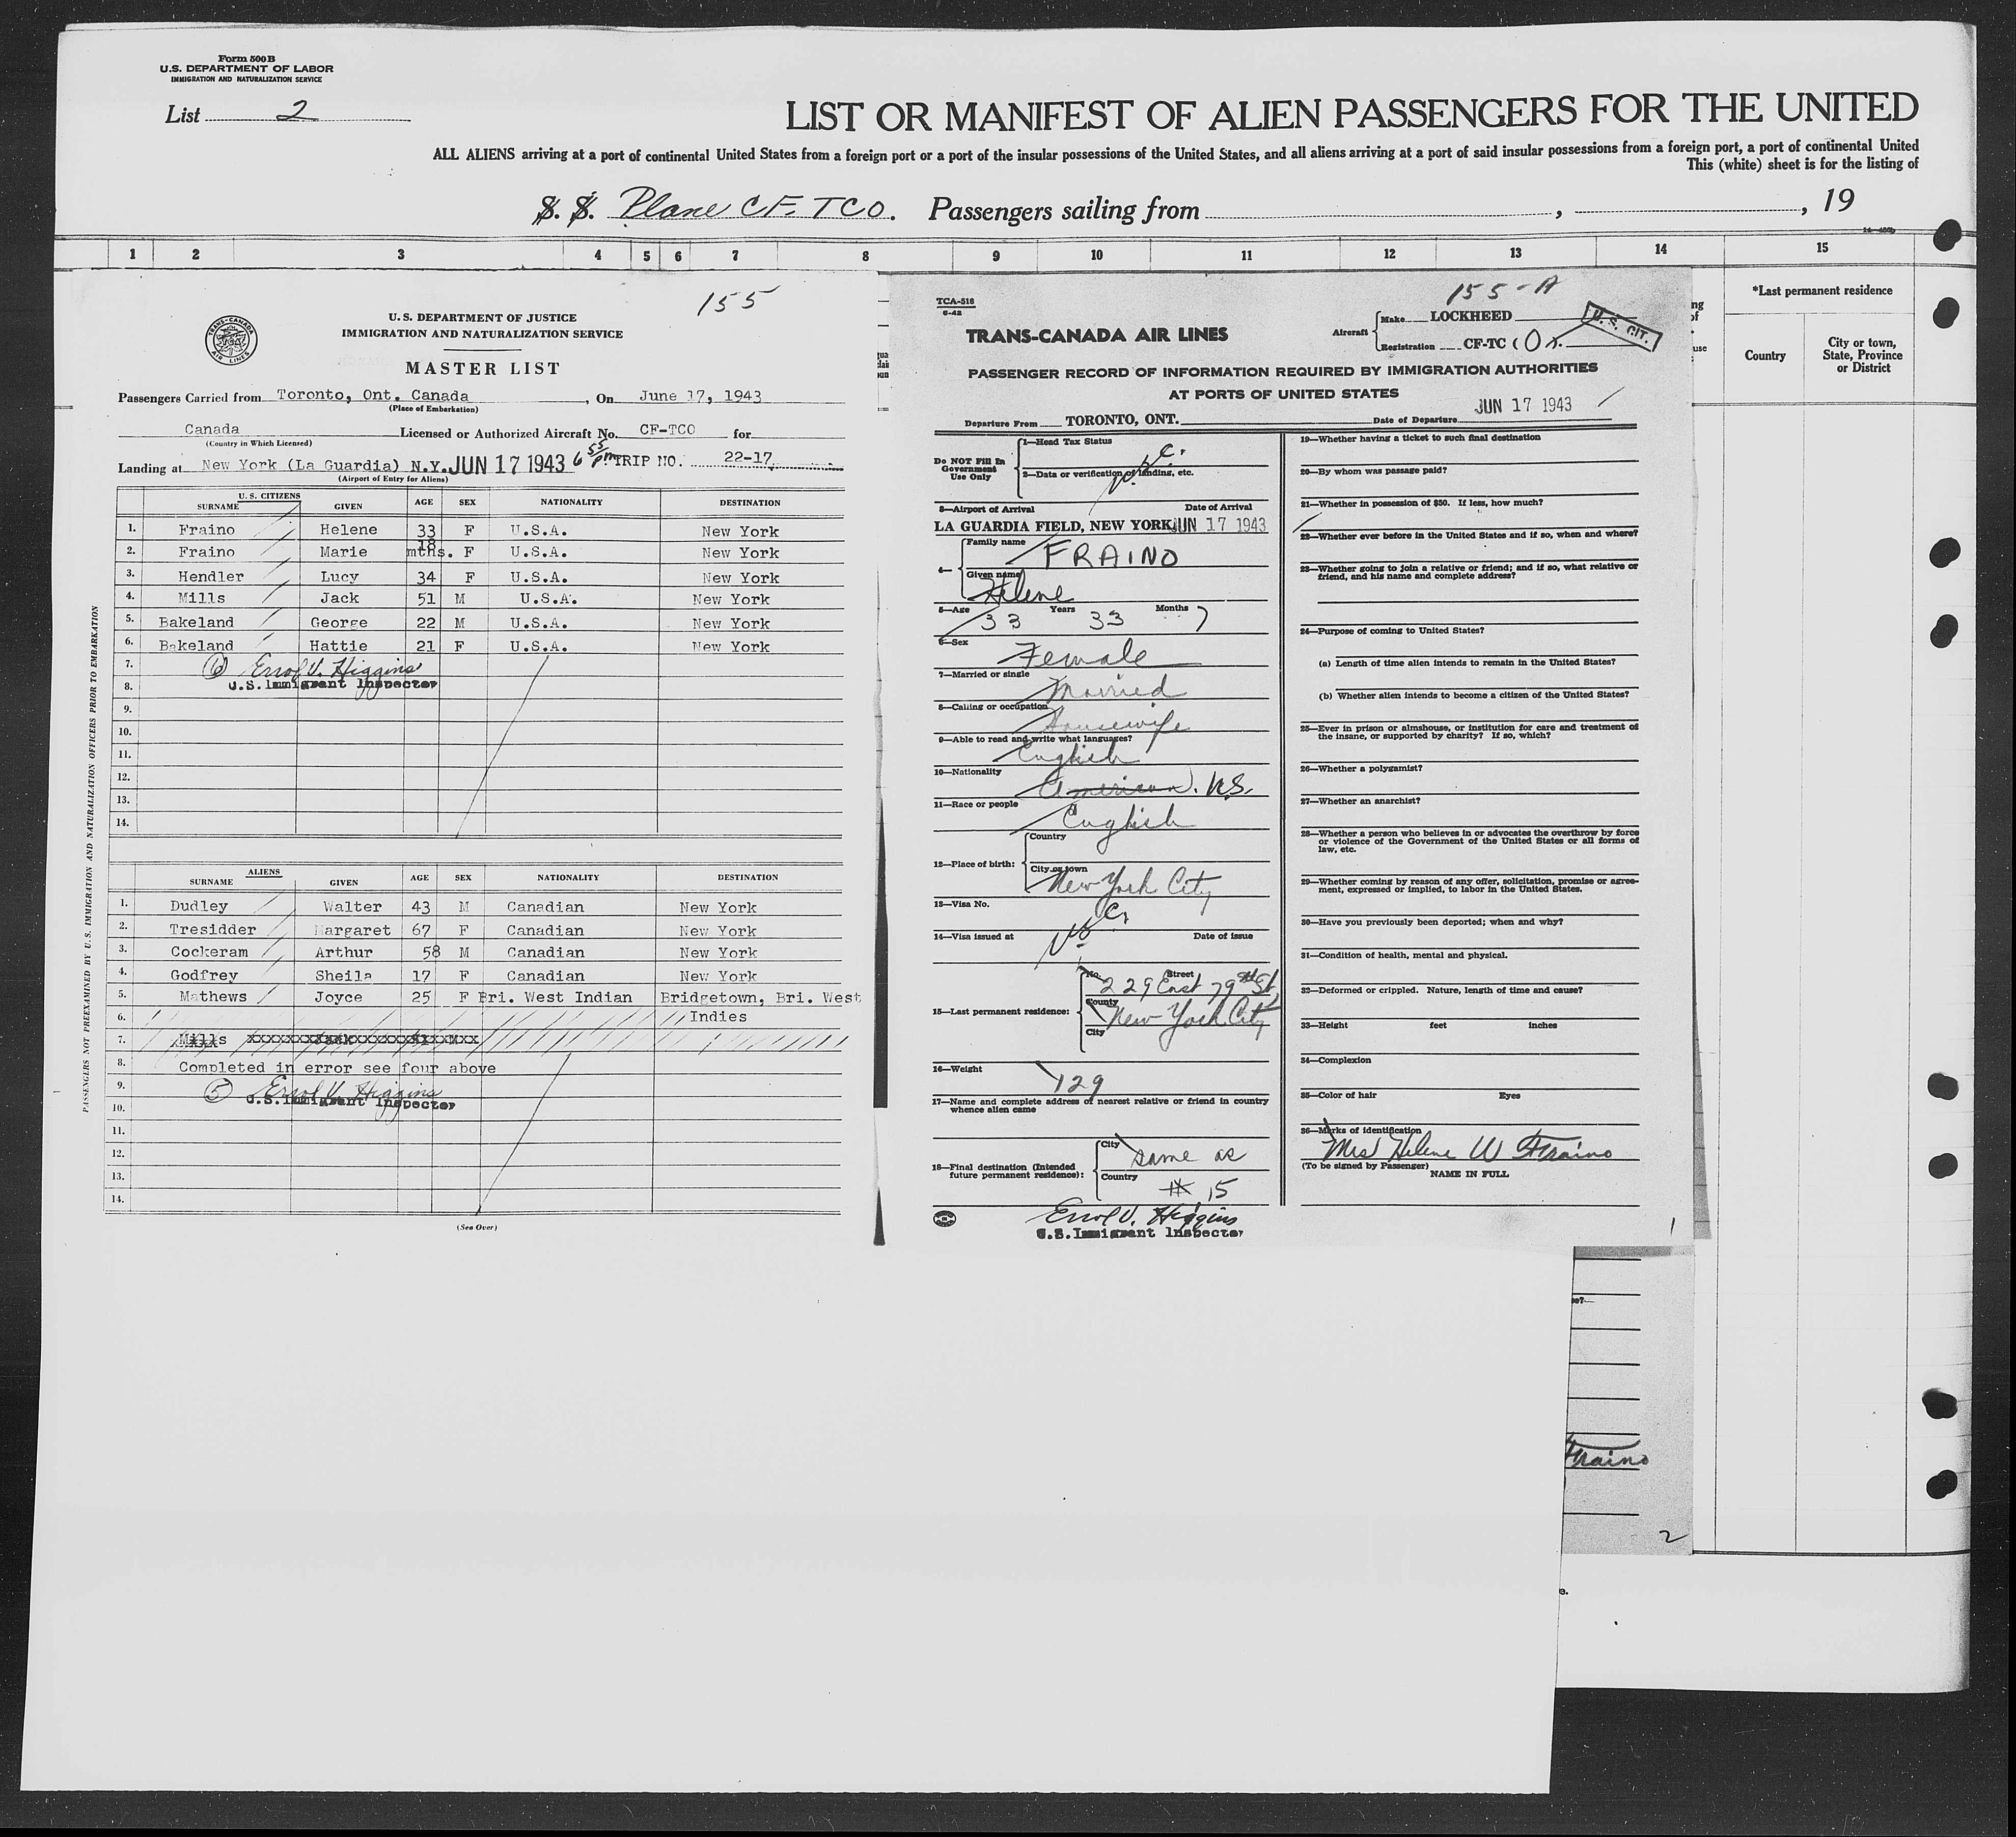 Form 500B
U.S. DEPARTMENT OF LABOR
IMMIGRATION AND NATURALIZATION SERVICE
List 2
LIST OR MANIFEST OF ALIEN PASSENGERS FOR THE UNITED
ALL ALIENS arriving at a port of continental United States from a foreign port or a port of the insular possessions of the United States, and all aliens arriving at a port of said insular possessions from a foreign port, a port of continental United
This (white) sheet is for the listing of
S. S. Plane CF. TCO. Passengers sailing from , , 19
1 2 3 4 5 6 7 8 9 10 11 12 13 14 15
*Last permanent residence
Country
City or town,
State, Province
or District
155
U. S. DEPARTMENT OF JUSTICE
IMMIGRATION AND NATURALIZATION SERVICE
TRANS-CANADA
AIR LINES
MASTER LIST
Passengers Carried from Toronto, Ont. Canada , On June 17, 1943
(Place of Embarkation)
Canada Licensed or Authorized Aircraft No. CF-TCO for
(Country in Which Licensed)
Landing at New York (La Guardia) N.Y. JUN 17 1943 6 55 pm TRIP NO. 22-17
(Airport of Entry for Aliens)
U. S. CITIZENS
SURNAME GIVEN AGE SEX NATIONALITY DESTINATION
1. Fraino Helene 33 F U.S.A. New York
2. Fraino Marie 18 mths. F U.S.A. New York
3. Hendler Lucy 34 F U.S.A. New York
4. Mills Jack 51 M U.S.A. New York
5. Bakeland George 22 M U.S.A. New York
6. Bakeland Hattie 21 F U.S.A. New York
7. (6) Errol V. Higgins
8. U.S. Immigrant Inspector
9.
10.
11.
12.
13.
14.
ALIENS
SURNAME GIVEN AGE SEX NATIONALITY DESTINATION
1. Dudley Walter 43 M Canadian New York
2. Tresidder Margaret 67 F Canadian New York
3. Cockeram Arthur 58 M Canadian New York
4. Godfrey Sheila 17 F Canadian New York
5. Mathews Joyce 25 F Bri. West Indian Bridgetown, Bri. West
6. Indies
7. Mills Jack 51 M
8. Completed in error see four above
9. (5) Errol V. Higgins
10. U.S. Immigrant Inspector
11.
12.
13.
14.
(See Over)
PASSENGERS NOT PREEXAMINED BY U.S. IMMIGRATION AND NATURALIZATION OFFICERS PRIOR TO EMBARKATION
TCA-518
6-42
155-A
TRANS-CANADA AIR LINES
Aircraft Make LOCKHEED
Registration CF-TC (O).
U. S. CIT.
PASSENGER RECORD OF INFORMATION REQUIRED BY IMMIGRATION AUTHORITIES
AT PORTS OF UNITED STATES
Departure From TORONTO, ONT. Date of Departure JUN 17 1943
Do NOT Fill In
Government
Use Only
1—Head Tax Status
2—Data or verification of landing, etc.
3—Airport of Arrival Date of Arrival
LA GUARDIA FIELD, NEW YORK JUN 17 1943
4— Family name FRAINO
Given name Helene
5—Age 33 Years 33 Months 7
6—Sex Female
7—Married or single Married
8—Calling or occupation Housewife
9—Able to read and write what languages? English
10—Nationality American. U.S.
11—Race or people English
12—Place of birth: Country
City or town New York City
13—Visa No.
14—Visa issued at Date of issue
15—Last permanent residence: No. Street 229 East 79th St
County New York City
City
16—Weight 129
17—Name and complete address of nearest relative or friend in country
whence alien came
18—Final destination (Intended
future permanent residence): City same as
Country # 15
Errol V. Higgins
U.S. Immigrant Inspector
19—Whether having a ticket to such final destination
20—By whom was passage paid?
21—Whether in possession of $50. If less, how much?
22—Whether ever before in the United States and if so, when and where?
23—Whether going to join a relative or friend; and if so, what relative or
friend, and his name and complete address?
24—Purpose of coming to United States?
(a) Length of time alien intends to remain in the United States?
(b) Whether alien intends to become a citizen of the United States?
25—Ever in prison or almshouse, or institution for care and treatment of
the insane, or supported by charity? If so, which?
26—Whether a polygamist?
27—Whether an anarchist?
28—Whether a person who believes in or advocates the overthrow by force
or violence of the Government of the United States or all forms of
law, etc.
29—Whether coming by reason of any offer, solicitation, promise or agree-
ment, expressed or implied, to labor in the United States.
30—Have you previously been deported; when and why?
31—Condition of health, mental and physical.
32—Deformed or crippled. Nature, length of time and cause?
33—Height feet inches
34—Complexion
35—Color of hair Eyes
36—Marks of identification
Mrs Helene W Fraino
(To be signed by Passenger) NAME IN FULL
1
Fraino
2